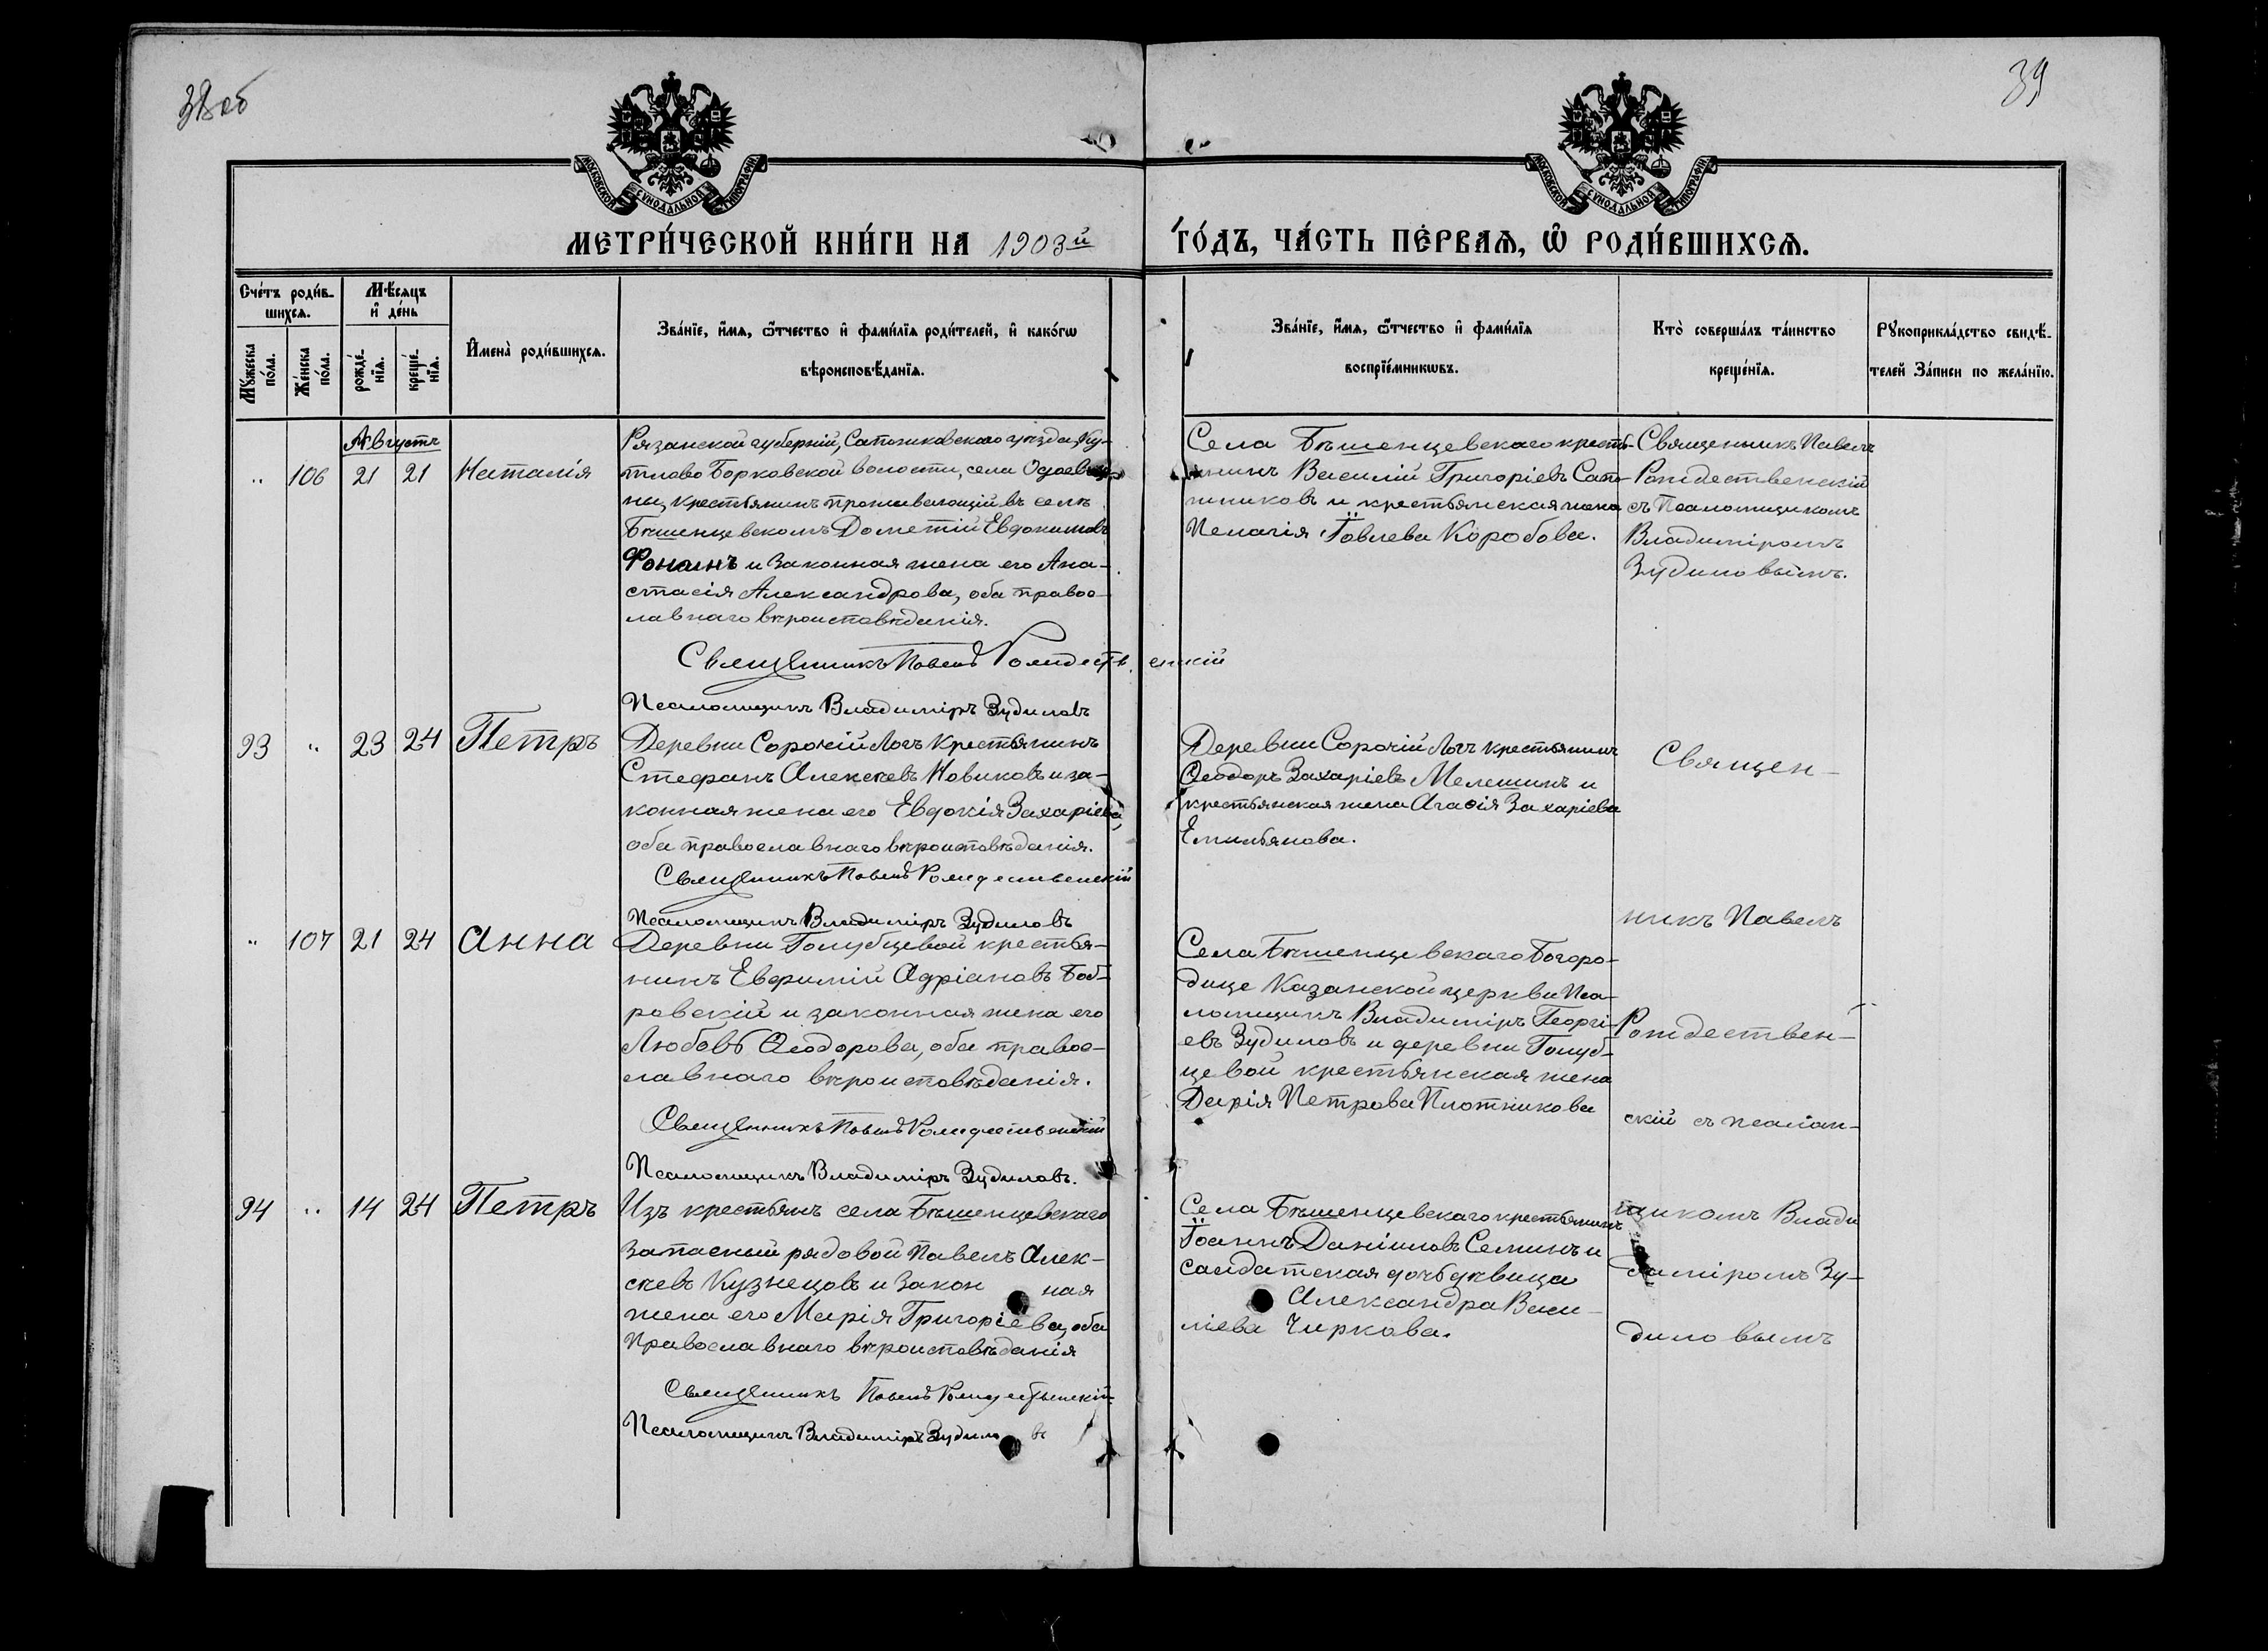 38 об
39
МОСКОВСКОЙ СѴНОДАЛЬНОЙ ТИПОГРАФІИ
МОСКОВСКОЙ СѴНОДАЛЬНОЙ ТИПОГРАФІИ
МЕТРИ́ЧЕСКОЙ КНИ́ГИ НА 1903й
ГО́ДЪ, ЧА́СТЬ ПЕ́РВАѦ, Ѽ РОДИ́ВШИХСѦ.
Сче́тъ роди́в-
шихсѧ.
Мꙋ́жеска
по́ла.
Же́нска
по́ла.
Мѣ́сяцъ
и҆ де́нь
рожде́-
нїѧ.
креще́-
нїѧ.
И҆мена̀ роди́вшихсѧ.
Зва́нїе, и҆́мѧ, ѻ҆́тчество и҆ фами́лїѧ роди́телей, и҆ како́гѡ
вѣроисповѣ́данїѧ.
Зва́нїе, и҆́мѧ, ѻ҆́тчество и҆ фами́лїѧ
воспрїе́мникѡвъ.
Кто̀ соверша́лъ та́инство
креще́нїѧ.
Рꙋкоприкла́дство свидѣ́-
телей За́писи по жела́нїю.
Августъ
" 106 21 21 Наталія
Рязанской губерніи, Сапожковскаго уѣзда, Ку-
тлово Борковской волости, села
ны, крестьянинъ проживающій въ селѣ
Бѣшенцевскомъ Дометій Евдокимовъ
Фонинъ и законная жена его Ана-
стасія Александрова, оба правос-
лавнаго вѣроисповѣданія.
Священникъ Павелъ Рождественскій
Псаломщикъ Владиміръ Зудиловъ
Села Бѣшенцевскаго кресть-
янинъ Василій Григоріевъ Сапо-
жниковъ и крестьянская жена
Пелагія Іовлева Коробова.
Священникъ Павелъ
Рождественскій
съ Псаломщикомъ
Владиміромъ
Зудиловымъ.
93 " 23 24 Петръ
Деревни Сорочій Логъ крестьянинъ
Стефанъ Алексѣевъ Новиковъ и за-
конная жена его Евдокія Захаріева,
оба православнаго вѣроисповѣданія.
Священникъ Павелъ Рождественскій
Псаломщикъ Владиміръ Зудиловъ
Деревни Сорочій Логъ крестьянинъ
Ѳеодоръ Захаріевъ Мелешинъ и
крестьянская жена Агаѳія Захаріева
Емильянова.
Священ-
никъ Павелъ
" 107 21 24 Анна
Деревни Голубцевой крестья-
нинъ Евфимій Адріановъ Боб-
ровскій и законная жена его
Любовь Ѳеодорова, оба правос-
лавнаго вѣроисповѣданія.
Священникъ Павелъ Рождественскій
Псаломщикъ Владиміръ Зудиловъ.
Села Бѣшенцевскаго Богоро-
дице Казанской церкви Пса-
ломщикъ Владиміръ Георгі-
евъ Зудиловъ и деревни Голуб-
цевой крестьянская жена
Дарія Петрова Плотникова
Рождествен-
скій съ псалом-
94 " 14 24 Петръ
Изъ крестьянъ села Бѣшенцевскаго
запасный рядовой Павелъ Алек-
сѣевъ Кузнецовъ и закон ная
жена его Марія Григоріева, оба
Православнаго вѣроисповѣданія
Священникъ Павелъ Рождественскій.
Псаломщикъ Владиміръ Зудило въ
Села Бѣшенцевскаго крестьянинъ
Іоаннъ Даніиловъ Семинъ и
салдатская дочь дѣвица
Александра Васи-
ліева Чиркова.
щикомъ Влади
диміромъ Зу-
диловымъ